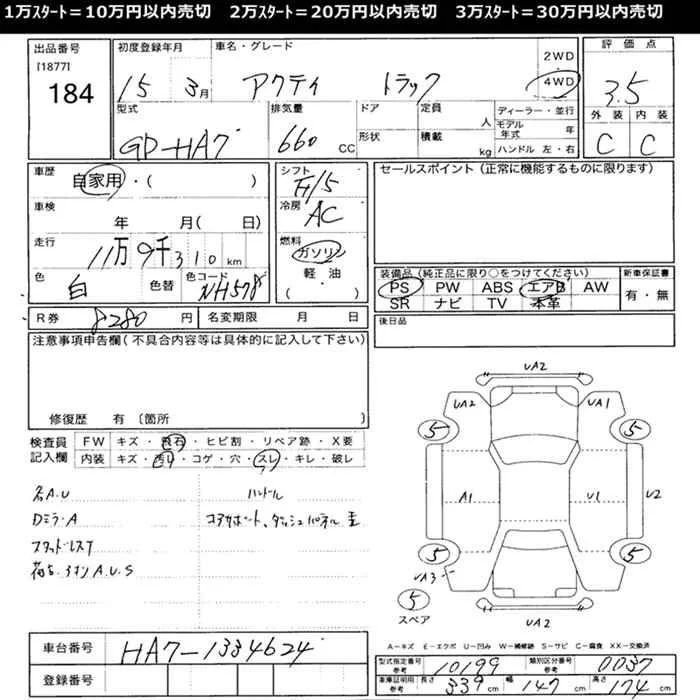 1万ｽﾀｰﾄ＝10万円以内売切　2万ｽﾀｰﾄ＝20万円以内売切　3万ｽﾀｰﾄ＝30万円以内売切
出品番号
[1877]
184
初度登録年月
15 3月
車名・グレード
アクティ トラック
2WD
4WD
評価点
3.5
外装 内装
C C
型式
GD-HA7
排気量
660 CC
ドア
形状
定員 人
積載 kg
ディーラー・並行
モデル年式 年
ハンドル 左・右
車歴
自家用・( )
車検
年 月( 日)
走行
11万9千310km
色
白
色替
色コード
NH578
シフト
F/5
冷房
AC
燃料
ガソリン
軽・油
( ・ )
セールスポイント(正常に機能するものに限ります)
装備品(純正品に限り○をつけてください)
PS PW ABS エアB AW
SR ナビ TV 本革
新車保証書
有・無
後日品
R券 8280円
名変期限 月 日
注意事項申告欄(不具合内容等は具体的に記入して下さい)
修復歴 有〔箇所 〕
検査員記入欄
FW キズ・飛石・ヒビ割・リペア跡・X要
内装 キズ・汚レ・コゲ・穴・スレ・キレ・破レ
各A.U
Dミラ・A
スタッドレスT
ハンドル
UA2
UA2 UA1
5 5
A1 U1 U2
5 5
UA3
5
スペア
UA2
A=キズ E=エクボ U=凹み W=補修跡 S=サビ C=腐食 XX=交換済
車台番号 HA7-1334624
登録番号
型式指定番号 参考 10199
類別区分番号 参考 0037
車庫証明用 参考
長さ 339cm 幅 147cm 高さ 174cm